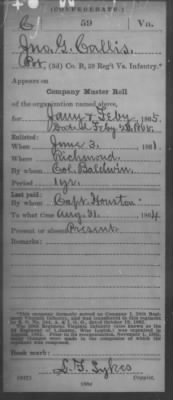 (CONFEDERATE.)
C 59 Va.
Jno. G. Corllis
Pvt, (3d) Co. B, 59 Reg't Va. Infantry.*
Appears on
Company Muster Roll
of the organization named above,
for Jany & Feby, 1865.
Enlisted:
When June 3, 1861.
Where Richmond
By whom Col. Baldwin
Period 1 yr.
Last paid:
By whom Capt. Houston
To what time Aug. 31, 1864
Present or absent Present
Remarks:
Book mark:
L. T. Sykes
Copyist.